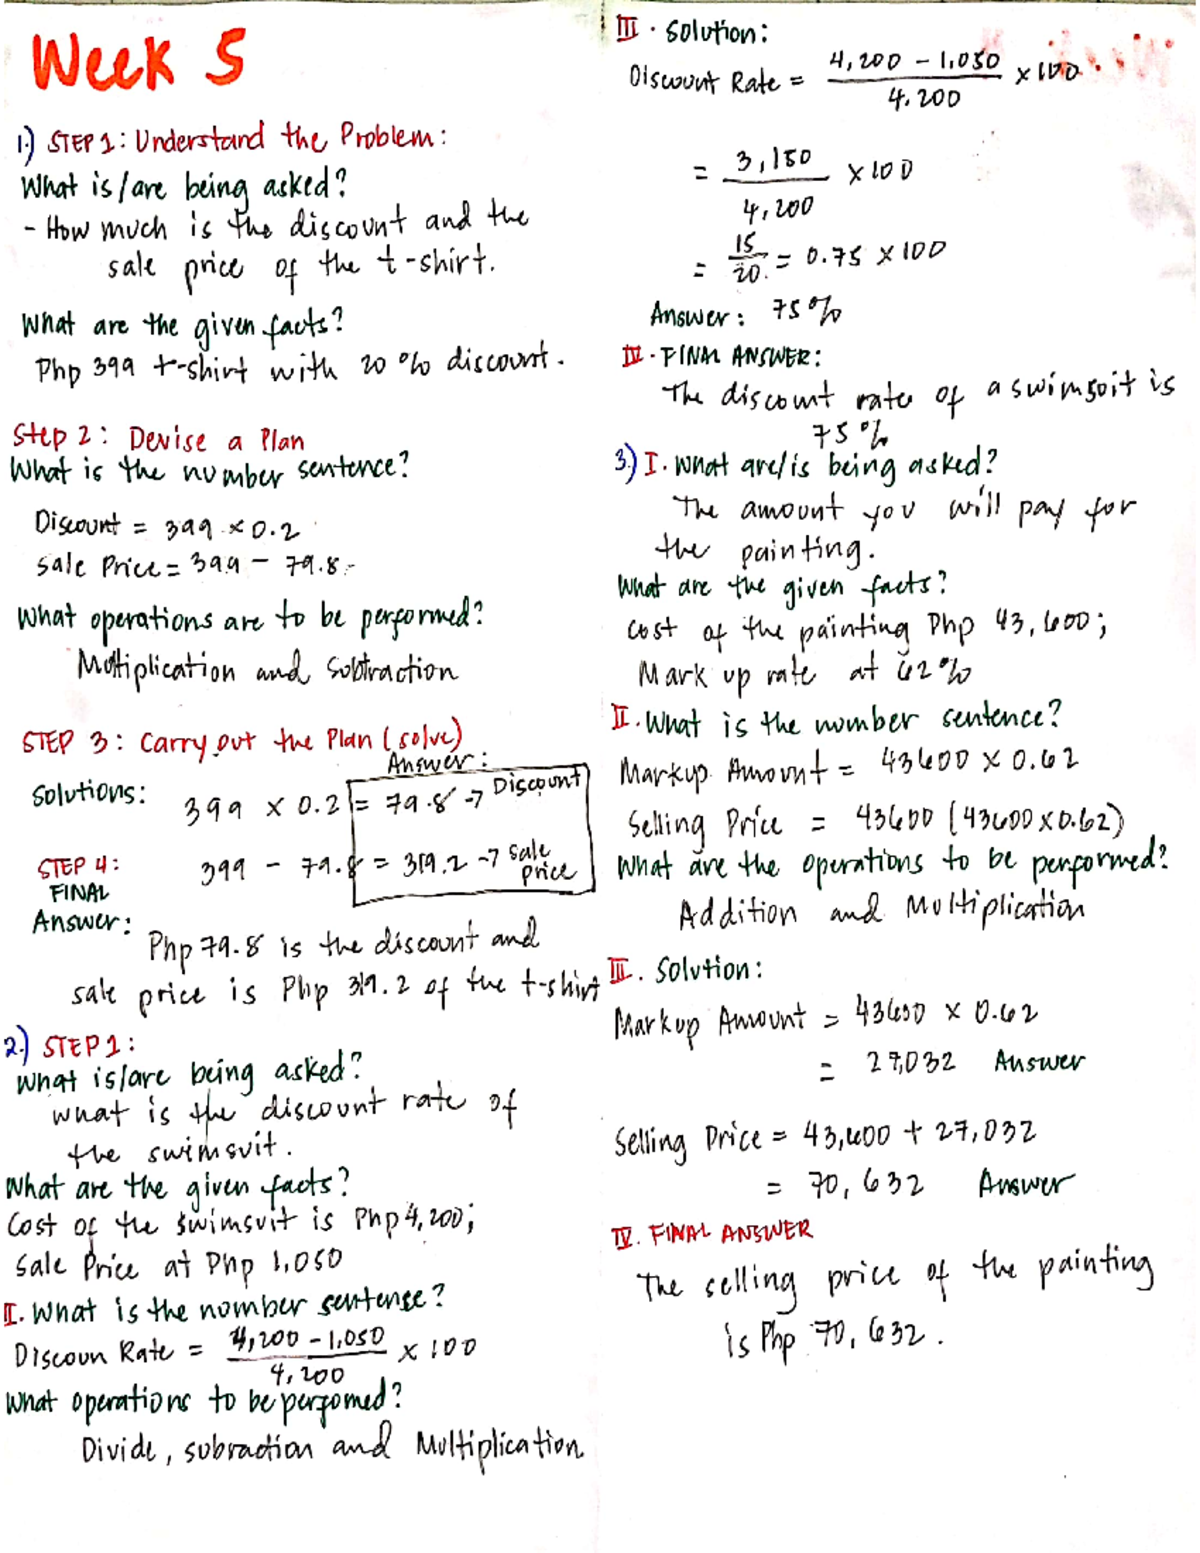 Week 5
1.) STEP 1: Understand the Problem:
What is/are being asked?
- How much is the discount and the
sale price of the t-shirt.
What are the given facts?
Php 399 t-shirt with 20 % discount.
Step 2: Devise a Plan
What is the number sentence?
Discount = 399 x 0.2
Sale Price = 399 - 79.8
What operations are to be performed?
Multiplication and Subtraction
STEP 3: Carry out the Plan (solve)
Answer:
Solutions: 399 x 0.2 = 79.8 → Discount
STEP 4: 399 - 79.8 = 319.2 → sale price
FINAL
Answer:
Php 79.8 is the discount and
sale price is Php 319.2 of the t-shirt
2.) STEP 1:
What is/are being asked?
what is the discount rate of
the swimsuit.
What are the given facts?
Cost of the swimsuit is Php 4,200;
Sale Price at Php 1,050
II. What is the number sentense?
Discoun Rate = 4,200 - 1,050 / 4,200 x 100
What operations to be perfomed?
Divide, subraction and Multiplication
III. Solution:
Discount Rate = 4,200 - 1,050 / 4,200 x 100
= 3,150 / 4,200 x 100
= 15/20 = 0.75 x 100
Answer: 75%
IV. FINAL ANSWER:
The discount rate of a swimsoit is
75%
3.) I. What are/is being asked?
The amount you will pay for
the painting.
What are the given facts?
Cost of the painting Php 43,600;
Mark up rate at 62%
II. What is the number sentence?
Markup Amount = 43600 x 0.62
Selling Price = 43600 (43600 x 0.62)
What are the operations to be performed?
Addition and Multiplication
III. Solution:
Markup Amount = 43600 x 0.62
= 27,032 Answer
Selling Price = 43,600 + 27,032
= 70,632 Answer
IV. FINAL ANSWER
The selling price of the painting
is Php 70,632.